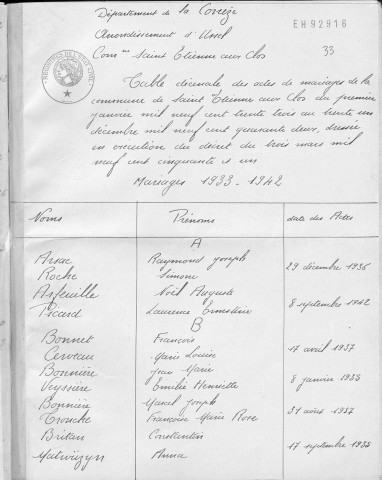 Département de la Corrèze
EH92916
Arrondissement d'Ussel
33
Comne Saint Etienne aux Clos
Table décenale des actes de mariages de la
commune de Saint Etienne aux Clos du premier
janvier mil neuf cent trente trois au trente un
décembre mil neuf cent quarante deux, dressée
en exécution du décret du trois mars mil
neuf cent cinquante et un
Mariages 1933-1942
Noms Prénoms date des Actes
A
Arsac Raymond Joseph
Roche Simone 29 décembre 1936
Arfeuille Noël Auguste
Picard Laurence Ernestine 8 septembre 1942
B
Bonnet François
Cerveau Marie Louise 17 avril 1937
Bonnière Jean Marie
Veyssière Emilie Henriette 8 janvier 1938
Bonnière Marcel Joseph
Trouche Françoise Marie Rose 31 août 1937
Britan Constantin
Anna 17 septembre 1938